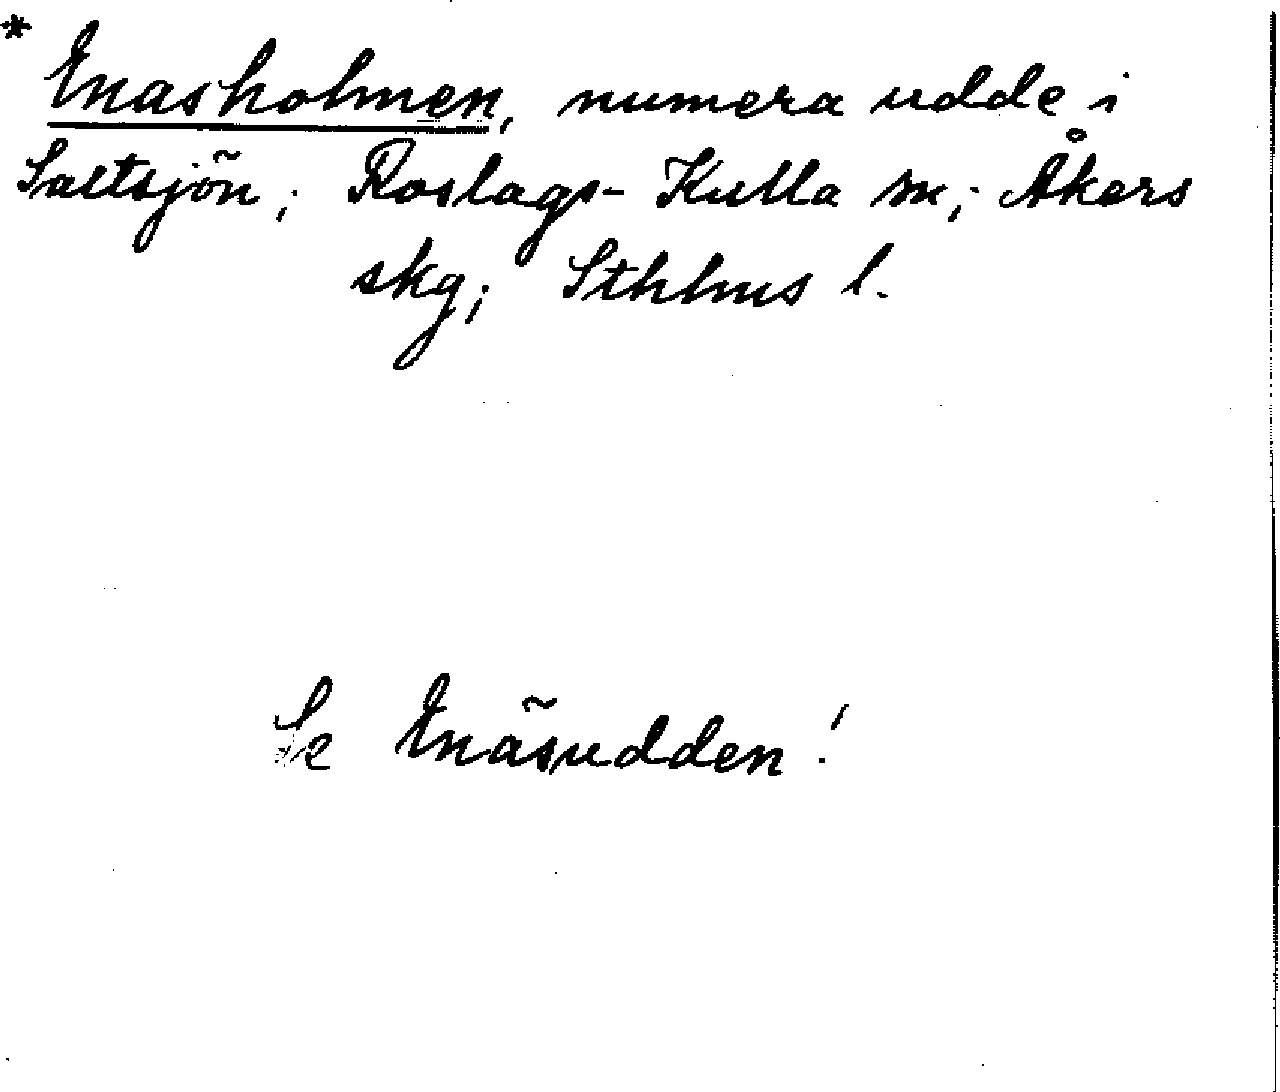 * Enasholmen, numera udde i
Saltsjön; Roslags-Kulla sn; Åkers
skg; Sthlms l.
Se Enäsudden!